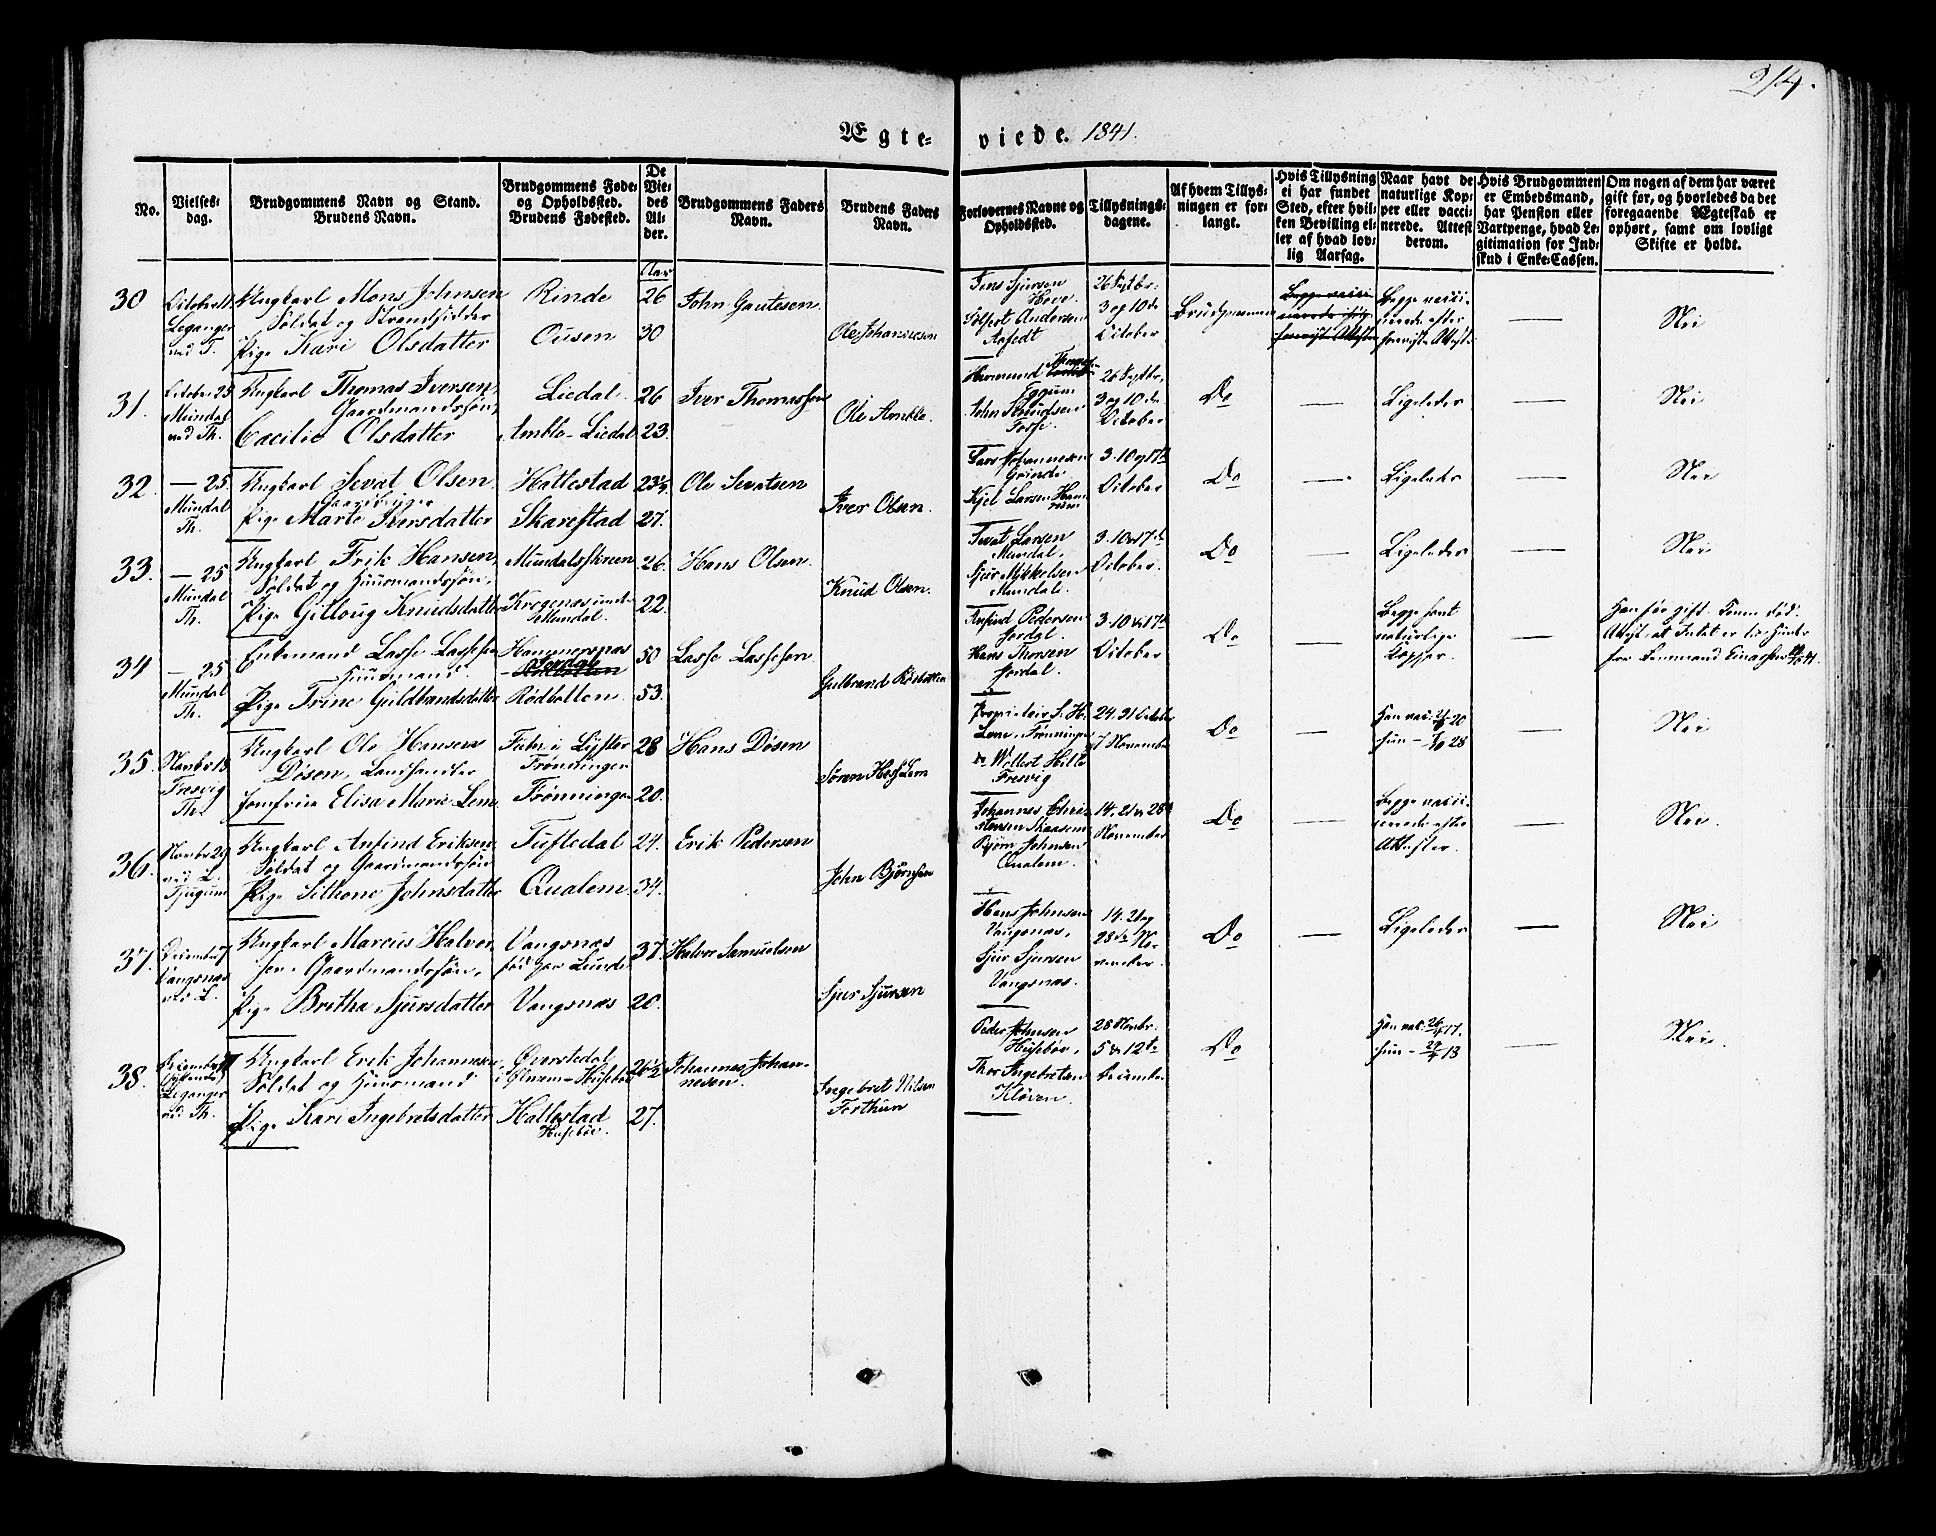 214.
Ægteviede. 1841.
No.
Vielsesdag.
Brudgommens Navn og Stand.
Brudens Navn.
Brudgommens Føde-
og Opholdssted.
Brudens Fødested.
De
Vie-
des
Al-
der.
Brudgommens Faders
Navn.
Brudens Faders
Navn.
Forlovernes Navne og
Opholdssted.
Tillysnings-
dagene.
Af hvem Tillys-
ningen er for-
langt.
Hvis Tillysning
ei har fundet
Sted, efter hvil-
ken Bevilling el-
ler af hvad lov-
lig Aarsag.
Naar havt de
naturlige Kop-
per eller vacci-
nerede. Attest
derom.
Hvis Brudgommen
er Embedsmand,
har Pension eller
Vartpenge, hvad Le-
gitimation for Ind-
skud i Enke-Cassen.
Om nogen af dem har været
gift før, og hvorledes da det
foregaaende Ægteskab er
ophørt, samt om lovligt
Skifte er holdt.
Aar
30
October
Leganger
ved T.
Ungkarl Mons Johnsen
Soldat og Strandsidder
Pige Kari Olsdatter
Rinde
Ousen
26
30
John Gautesen
Ole Johannesen
Jens Sjursen
Hove.
Andersen
26 Septbr.
3 og 10de
October
Brudgommen
Begge vacci-
nerede efter
foreviste Attester
Nei
31.
October 25
Mundal
ved Th.
Ungkarl Thomas Iversen,
Gaardmandssøn,
Cecilie Olsdatter
Liedal
Amble-Liedal
26
23.
Iver Thomassen
Ole Amble.
Hermund
Eggum
John Knudsen
Fosse.
26 Septbr.
3 og 10de
October
Do
Ligeledes
Nei
32.
— 25
Mundal
Th.
Ungkarl Sevat Olsen
Pige Marte Iversdatter
Hallestad
Skarestad
23½
27.
Ole Sevatsen
Iver Olsen.
Lars Johannesen
Grinde
Kjel Larsen Ham-
rum
3. 10 og 17de
October
Do
Ligeledes
Nei
33.
— 25
Mundal
Th.
Ungkarl Erik Hansen,
Soldat og Huusmandssøn,
Pige Gitloug Knudsdatter
Mundalsskreen
Krogenæs under
Mundal.
26.
22.
Hans Olsen
Knud Olsen.
Sevat Larsen
Mundal,
Sjur Mikkelsen
Mundal.
3. 10 og 17de
October.
Do
Ligeledes
Nei
34
— 25
Mundal
Th.
Enkemand Lasse Lassesen
Huusmand.
Pige Trine Guldbrandsdatter
Hammersnæs
Jordal
Rødbotten.
50
53.
Lasse Lassesen
Gulbrand Rødbotten
Anfind Pedersen
Jordal,
Hans Thorsen
Jordal.
3. 10 & 17de
October
Do
Begge havt
naturlige
Kopper.
Han før gift. Konen død.
Attest at Intet er til Hinder
fra Lensmand Einarsen
35.
Novbr 18
Fresvig
Th.
Ungkarl Ole Hansen
Døsen, Landhandler
Jomfrue Elisa Marie Lem
i Lyster
Frønningen
Frønningen
28
20.
Hans Døsen
Søren Hess Lem
Proprietair S. H.
Lem, Frønningen
Wollert Hille
Fresvig
24. 31 October
7 November
Do
Han vac. 20
Hun — 28
Nei
36.
Novbr 29
ved L.
Tjugum
Ungkarl Anfind Eriksen
Soldat og Gaardmandssøn
Pige Sithone Johnsdatter
Tuftedal
Qualem
24.
34.
Erik Pedersen
John Bjørnsen
Johannes Chri-
stensen Skaasem
Bjørn Johnsen
Qualem.
14. 21 & 28de
November
Do
Begge vacci-
nerede efter
Attester.
Nei.
37.
December 7
Vangsnæs
ved L.
Ungkarl Marcus Halvor-
sen Gaardmandssøn,
Pige Britha Sjursdatter
Vangsnæs
født paa Lunde
Vangsnæs
37
20.
Halvor Samuelsen
Sjur Sjursen
Hans Johnsen
Vangsnæs,
Sjur Sjursen
Vangsnæs.
14. 21 og
28de No-
vember.
Do
Ligeledes
Nei
38.
December
Leganger
ved Th.
Ungkarl Erik Johannesen
Soldat og Huusmand
Pige Kari Ingebretsdatter
Øvrestedal
Hallestad
Husebøe.
26½
27.
Johannes Johan-
nesen.
Ingebret Nilsen
Forthun
Peder Johnsen
Husebøe,
Thor Ingebretsen
Kløven.
28 Novbr.
5 & 12te
December
Do
Han vac. 17.
Hun — 13
Nei.